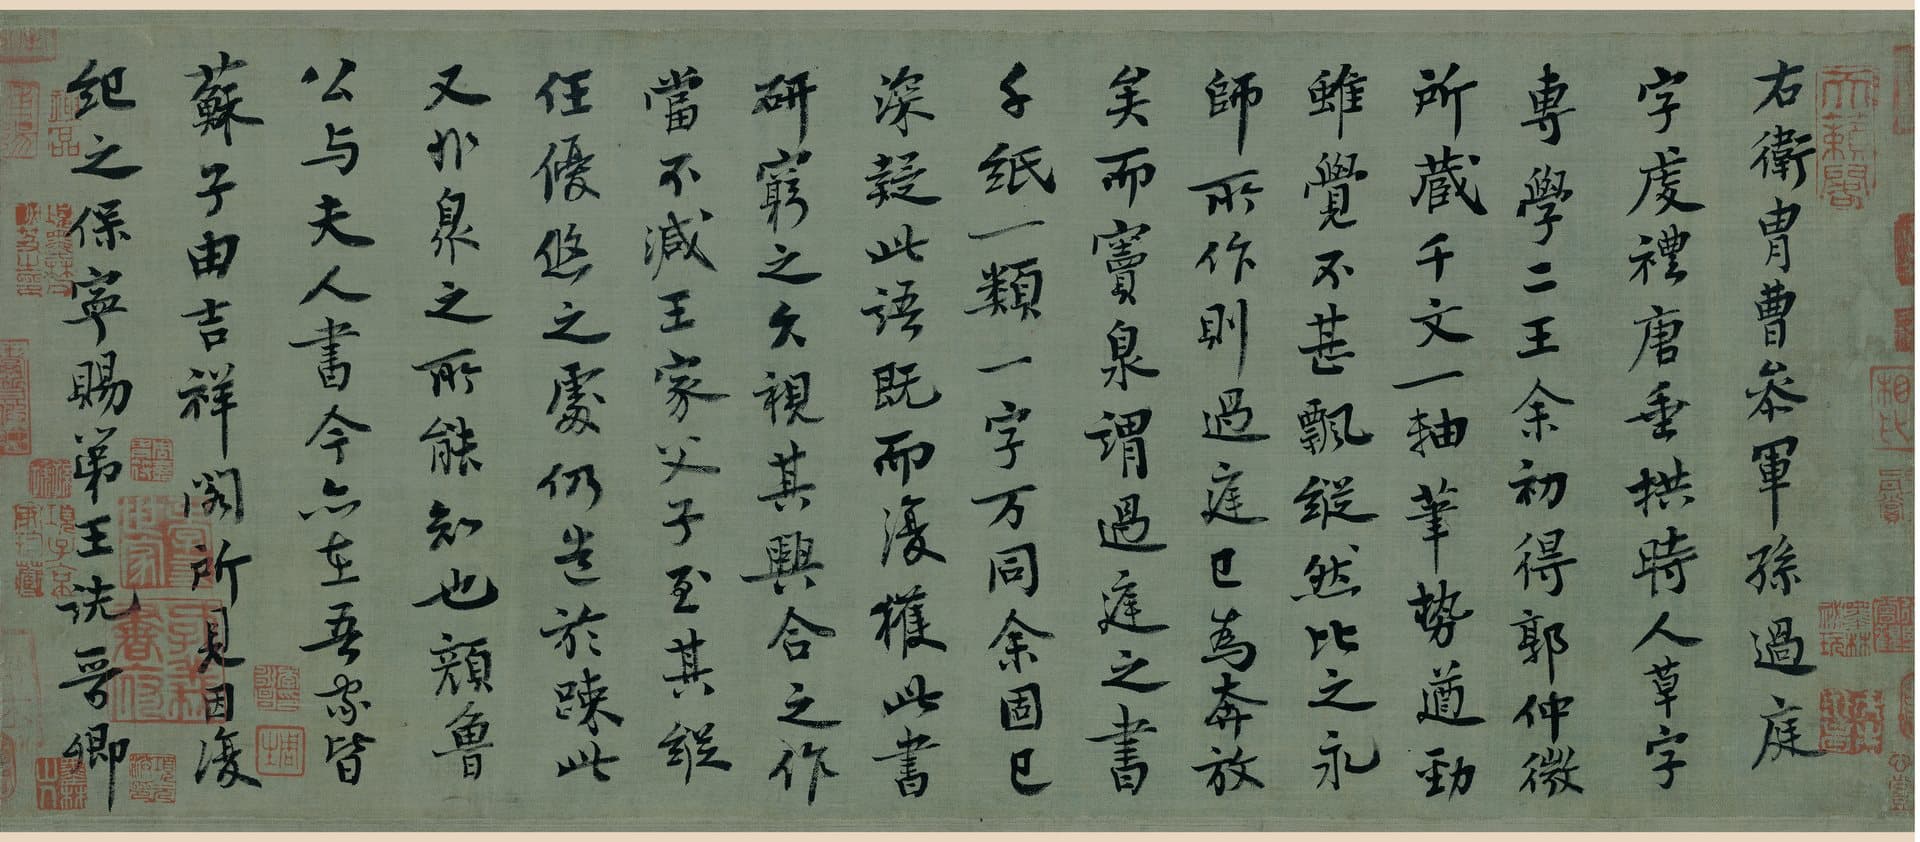 右衛胄曹參軍孫過庭
字虔禮唐垂拱時人草字
專學二王余初得郭仲微
所藏千文一軸筆勢遒勁
雖覺不甚飄縱然比之永
師所作則過庭已為奔放
矣而竇臮謂過庭之書
千紙一類一字万同余固已
深疑此語既而復獲此書
研窮之久視其興合之作
當不減王家父子至其縱
任優悠之處仍造於疎此
又非臮之所能知也顏魯
公与夫人書今亦在吾家皆
蘇子由吉祥閣所見因復
紀之保寧賜第王詵晉卿